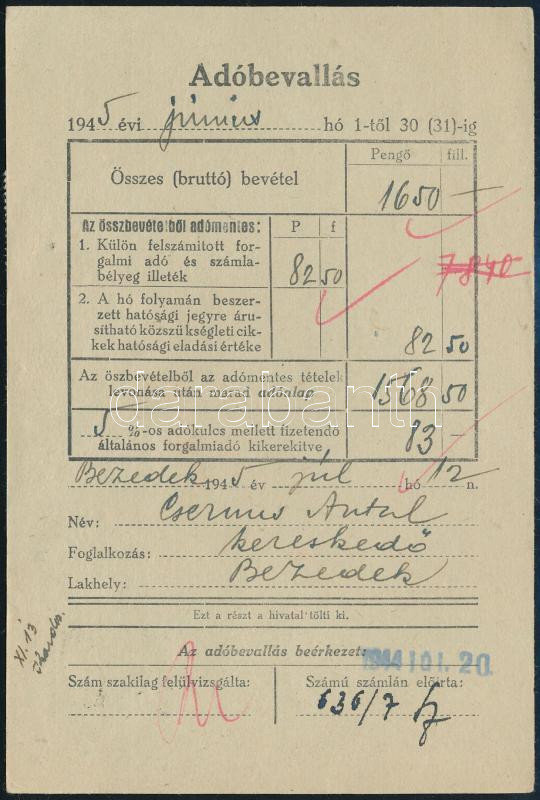 Adóbevallás
1945 évi június hó 1-től 30 (31)-ig
Pengő fill.
Összes (bruttó) bevétel 1650 —
Az összbevételből adómentes: P f
1. Külön felszámitott for-
galmi adó és számla-
bélyeg illeték 82 50
7840
2. A hó folyamán beszer-
zett hatósági jegyre áru-
sítható közszükségleti cik-
kek hatósági eladási értéke 82 50
Az öszbevételből az adómentes tételek
levonása után marad adóalap 1568 50
5 %-os adókulcs mellett fizetendő
általános forgalmiadó kikerekitve 83 —
darabanth
Bezedek 1945 év júl hó 12 n.
Név: Csermus Antal
Foglalkozás: kereskedő
Lakhely: Bezedek
Ezt a részt a hivatal tölti ki.
XI. 13
Az adóbevallás beérkezett: 1944 JUL. 20.
Szám szakilag felülvizsgálta:
Számú számlán előirta:
636/7